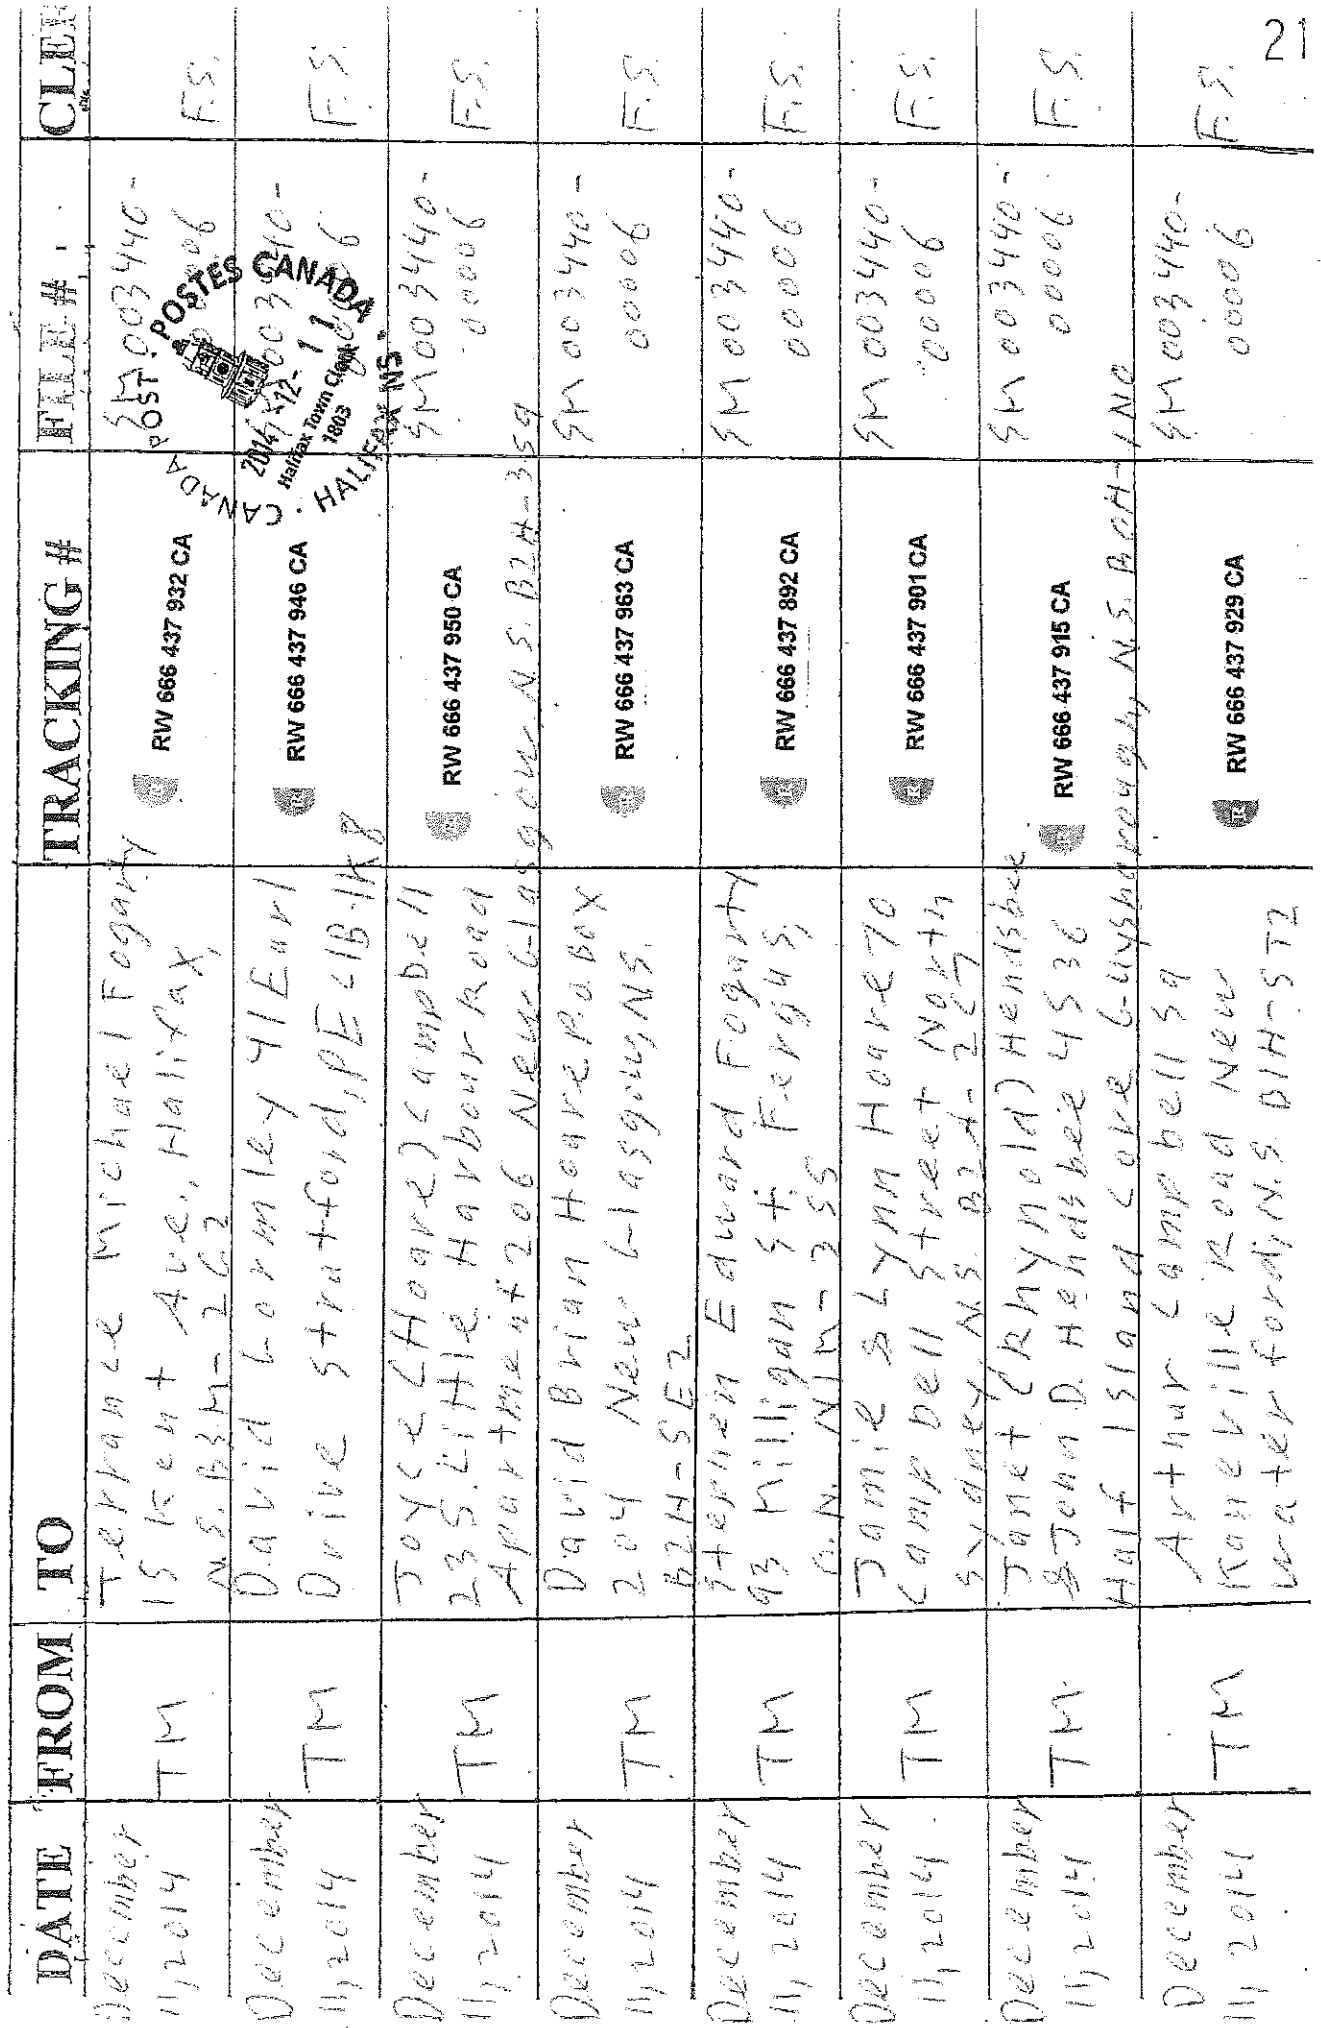 21
DATE FROM TO TRACKING # FILE # CLER
December
11, 2014
TM
Terrance Michael Fogarty
15 Kent Ave., Halifax,
N.S. B3M-2C2
RW 666 437 932 CA
SM003440-
00006
F.S.
December
11, 2014
TM
David Gormley 41 Earl
Drive Stratford, PE C1B-1K8
RW 666 437 946 CA
SM003440-
00006
F.S.
POSTES CANADA
CANADA POST
2014-12-11
Halifax Town Clock
1803
HALIFAX NS
December
11, 2014
TM
Joyce (Hoare) Campbell
235 Little Harbour Road
Apartment 206 New Glasgow N.S. B2H-3S9
RW 666 437 950 CA
SM003440-
00006
F.S.
December
11, 2014
TM
David Brian Hoare P.O. Box
204 New Glasgow, NS.
B2H-5E2
RW 666 437 963 CA
SM003440-
00006
F.S.
December
11, 2014
TM
Stephen Edward Fogarty
93 Milligan St. Fergus,
O.N. N1M-3S5
RW 666 437 892 CA
SM003440-
00006
F.S.
December
11, 2014.
TM
Jamie & Lynn Hoare 70
Campbell Street North
Sydney, N.S. B2A-2C7
RW 666 437 901 CA
SM003440-
00006
F.S.
December
11, 2014
TM
Janet (Rhynold) Hendsbee
& John D. Hendsbee 4536
Half Island Cove Guysborough, N.S. B0H-1N0
RW 666 437 915 CA
SM003440-
00006
F.S.
December
11, 2014
TM
Arthur Campbell 59
Road New
Waterford, N.S. B1H-5T2
RW 666 437 929 CA
SM003440-
00006
F.S.